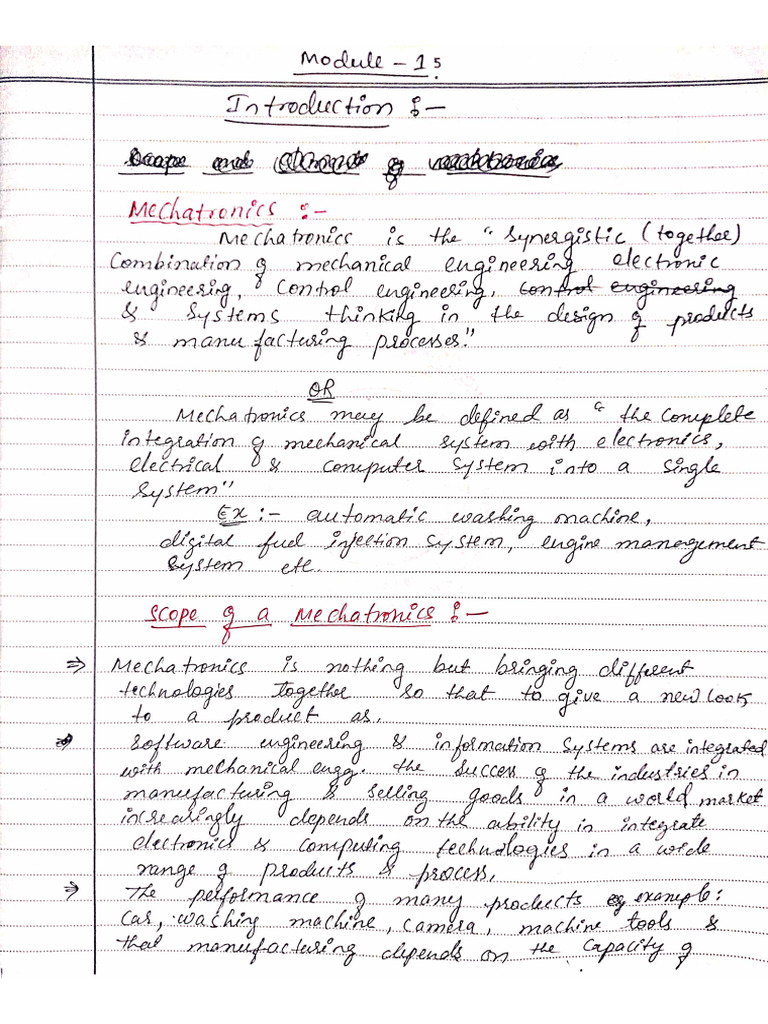 Module - 1:
Introduction :-
Mechatronics :-
Mechatronics is the "synergistic (together)
Combination of mechanical engineering electronic
engineering, control engineering, control engineering
& systems thinking in the design of products
& manufacturing processes."
OR
Mechatronics may be defined as "the complete
integration of mechanical system with electronics,
electrical & computer system into a single
system"
Ex :- automatic washing machine,
digital fuel injection system, engine management
system etc.
Scope of a Mechatronics :-
⇒ Mechatronics is nothing but bringing different
technologies together so that to give a new look
to a product as.
⇒ software engineering & information systems are integrated
with mechanical engg. the success of the industries in
manufacturing & selling goods in a world market
increasingly depends on the ability in integrate
electronics & computing technologies in a wide
range of products & process,
⇒ The performance of many products eg example:
Car, washing machine, camera, machine tools &
that manufacturing depends on the capacity of